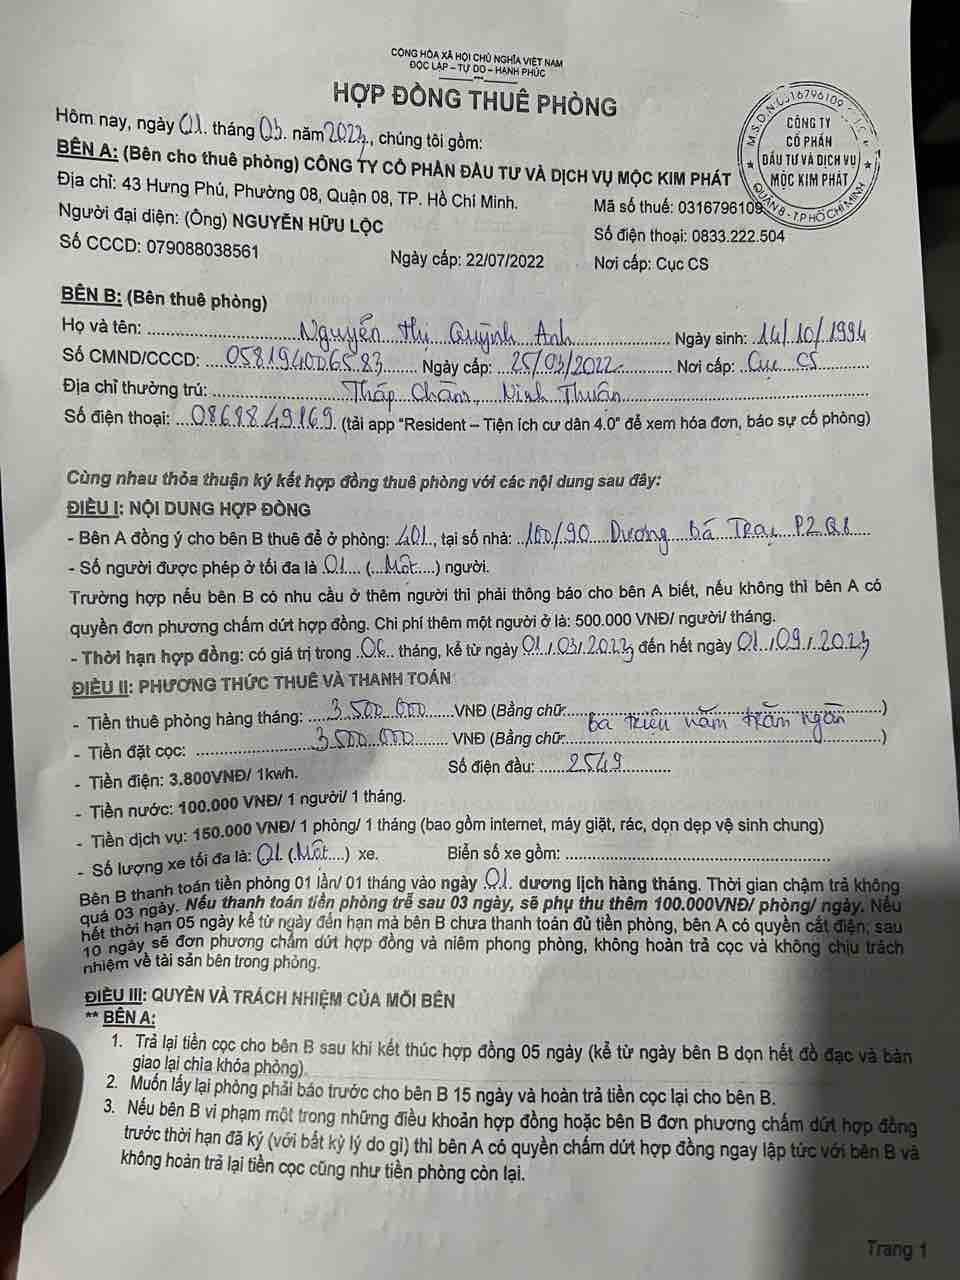 CỘNG HÒA XÃ HỘI CHỦ NGHĨA VIỆT NAM
ĐỘC LẬP – TỰ DO – HẠNH PHÚC
HỢP ĐỒNG THUÊ PHÒNG
M.S.D.N:0316796109
CÔNG TY
CỔ PHẦN
ĐẦU TƯ VÀ DỊCH VỤ
MỘC KIM PHÁT
QUẬN 8 - T.P HỒ CHÍ MINH
Hôm nay, ngày 01. tháng 03. năm 2023, chúng tôi gồm:
BÊN A: (Bên cho thuê phòng) CÔNG TY CỔ PHẦN ĐẦU TƯ VÀ DỊCH VỤ MỘC KIM PHÁT
Địa chỉ: 43 Hưng Phú, Phường 08, Quận 08, TP. Hồ Chí Minh. Mã số thuế: 0316796109
Người đại diện: (Ông) NGUYỄN HỮU LỘC Số điện thoại: 0833.222.504
Số CCCD: 079088038561 Ngày cấp: 22/07/2022 Nơi cấp: Cục CS
BÊN B: (Bên thuê phòng)
Họ và tên: Nguyễn Thị Quỳnh Anh Ngày sinh: 14/10/1994
Số CMND/CCCD: 058194006583 Ngày cấp: 25/03/2022 Nơi cấp: Cục CS
Địa chỉ thường trú: Tháp Chàm, Ninh Thuận
Số điện thoại: 0868849169 (tải app "Resident – Tiện ích cư dân 4.0" để xem hóa đơn, báo sự cố phòng)
Cùng nhau thỏa thuận ký kết hợp đồng thuê phòng với các nội dung sau đây:
ĐIỀU I: NỘI DUNG HỢP ĐỒNG
- Bên A đồng ý cho bên B thuê để ở phòng: 401, tại số nhà: 160/90 Dương Bá Trạc P2 Q8
- Số người được phép ở tối đa là 01 (Một) người.
Trường hợp nếu bên B có nhu cầu ở thêm người thì phải thông báo cho bên A biết, nếu không thì bên A có
quyền đơn phương chấm dứt hợp đồng. Chi phí thêm một người ở là: 500.000 VNĐ/ người/ tháng.
- Thời hạn hợp đồng: có giá trị trong 06 tháng, kể từ ngày 01/03/2023 đến hết ngày 01/09/2023
ĐIỀU II: PHƯƠNG THỨC THUÊ VÀ THANH TOÁN
- Tiền thuê phòng hàng tháng: 3.500.000 VNĐ (Bằng chữ: ba triệu năm trăm ngàn)
- Tiền đặt cọc: 3.500.000 VNĐ (Bằng chữ: )
- Tiền điện: 3.800VNĐ/ 1kwh. Số điện đầu: 2549
- Tiền nước: 100.000 VNĐ/ 1 người/ 1 tháng.
- Tiền dịch vụ: 150.000 VNĐ/ 1 phòng/ 1 tháng (bao gồm internet, máy giặt, rác, dọn dẹp vệ sinh chung)
- Số lượng xe tối đa là: 01 (Một) xe. Biển số xe gồm:
Bên B thanh toán tiền phòng 01 lần/ 01 tháng vào ngày 01. dương lịch hàng tháng. Thời gian chậm trả không
quá 03 ngày. Nếu thanh toán tiền phòng trễ sau 03 ngày, sẽ phụ thu thêm 100.000VNĐ/ phòng/ ngày. Nếu
hết thời hạn 05 ngày kể từ ngày đến hạn mà bên B chưa thanh toán đủ tiền phòng, bên A có quyền cắt điện; sau
10 ngày sẽ đơn phương chấm dứt hợp đồng và niêm phong phòng, không hoàn trả cọc và không chịu trách
nhiệm về tài sản bên trong phòng.
ĐIỀU III: QUYỀN VÀ TRÁCH NHIỆM CỦA MỖI BÊN
** BÊN A:
1. Trả lại tiền cọc cho bên B sau khi kết thúc hợp đồng 05 ngày (kể từ ngày bên B dọn hết đồ đạc và bàn
giao lại chìa khóa phòng).
2. Muốn lấy lại phòng phải báo trước cho bên B 15 ngày và hoàn trả tiền cọc lại cho bên B.
3. Nếu bên B vi phạm một trong những điều khoản hợp đồng hoặc bên B đơn phương chấm dứt hợp đồng
trước thời hạn đã ký (với bất kỳ lý do gì) thì bên A có quyền chấm dứt hợp đồng ngay lập tức với bên B và
không hoàn trả lại tiền cọc cũng như tiền phòng còn lại.
Trang 1